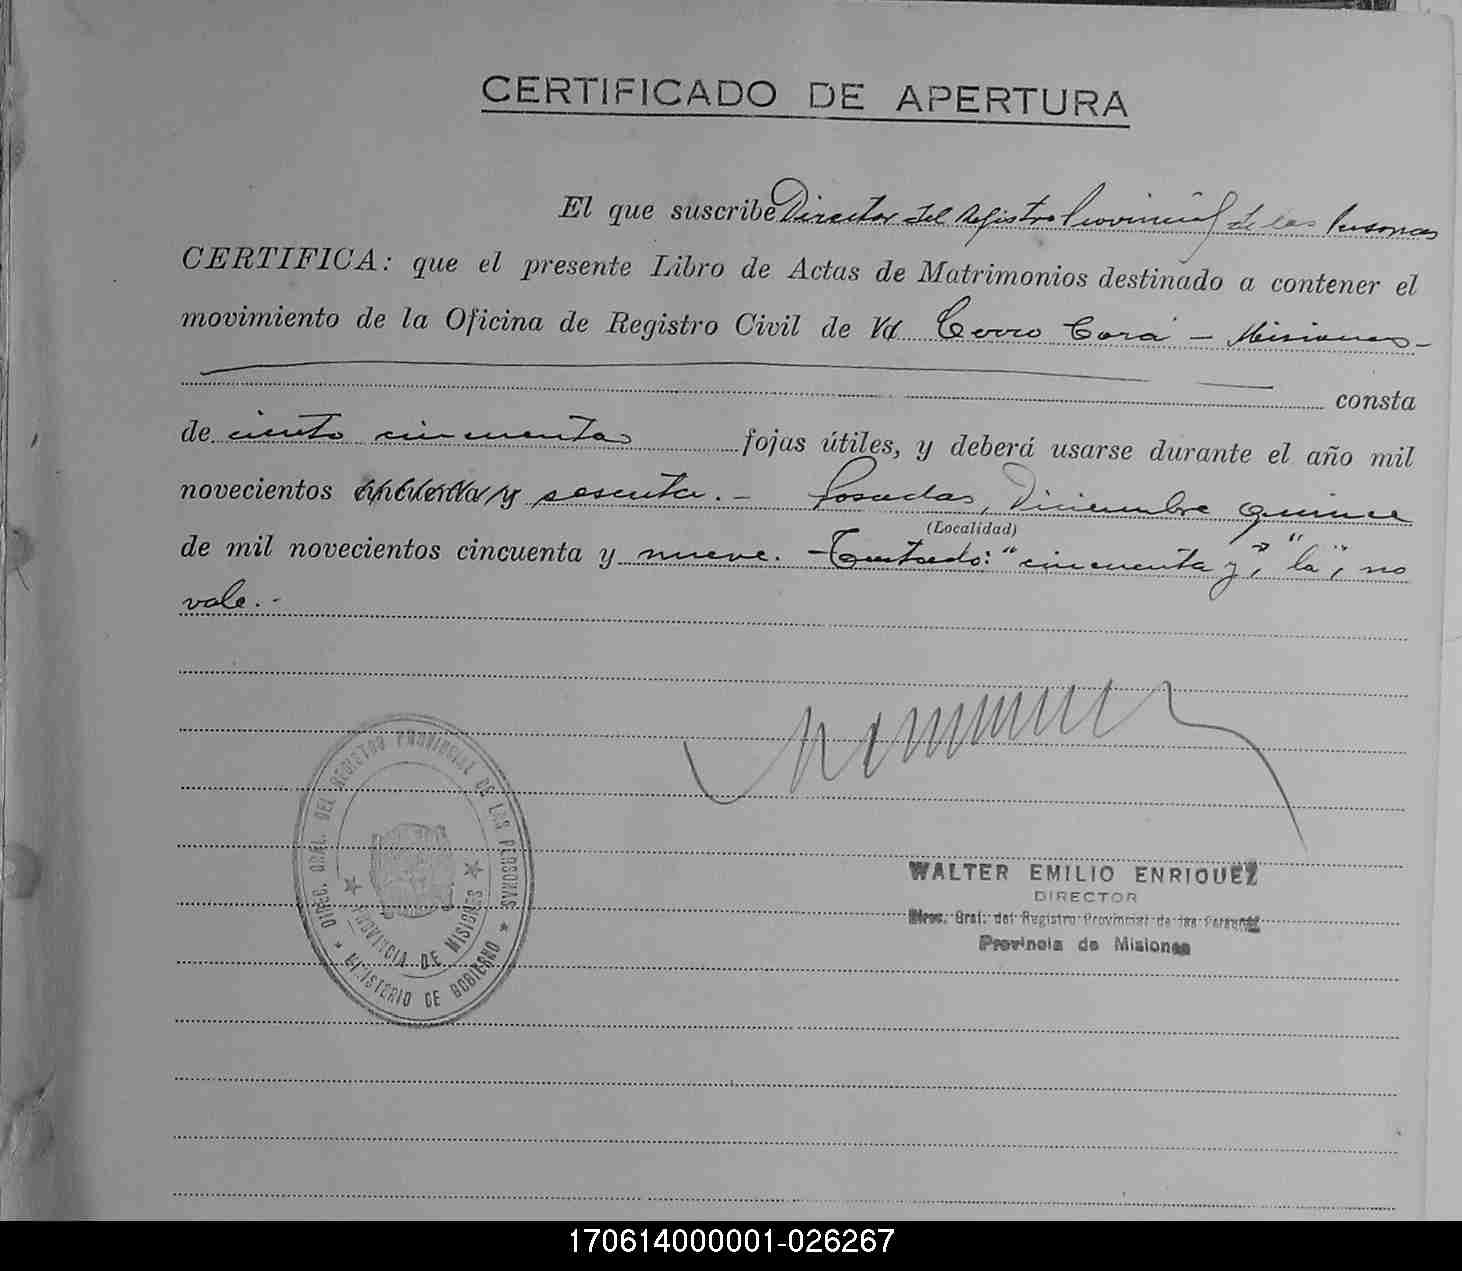 CERTIFICADO DE APERTURA
El que suscribe Director del Registro Provincial de las Personas
CERTIFICA: que el presente Libro de Actas de Matrimonios destinado a contener el
movimiento de la Oficina de Registro Civil de Cerro Corá - Misiones -
consta
de ciento cincuenta fojas útiles, y deberá usarse durante el año mil
novecientos cincuenta y sesenta. - Posadas, Diciembre quince
(Localidad)
de mil novecientos cincuenta y nueve. - Testado: "cincuenta y", "la", no
vale. -
DIREC. GRAL. DEL REGISTRO PROVINCIAL DE LAS PERSONAS
PROVINCIA DE MISIONES
MINISTERIO DE GOBIERNO
WALTER EMILIO ENRIQUEZ
DIRECTOR
Direc. Gral. del Registro Provincial de las Personas
Provincia de Misiones
170614000001-026267